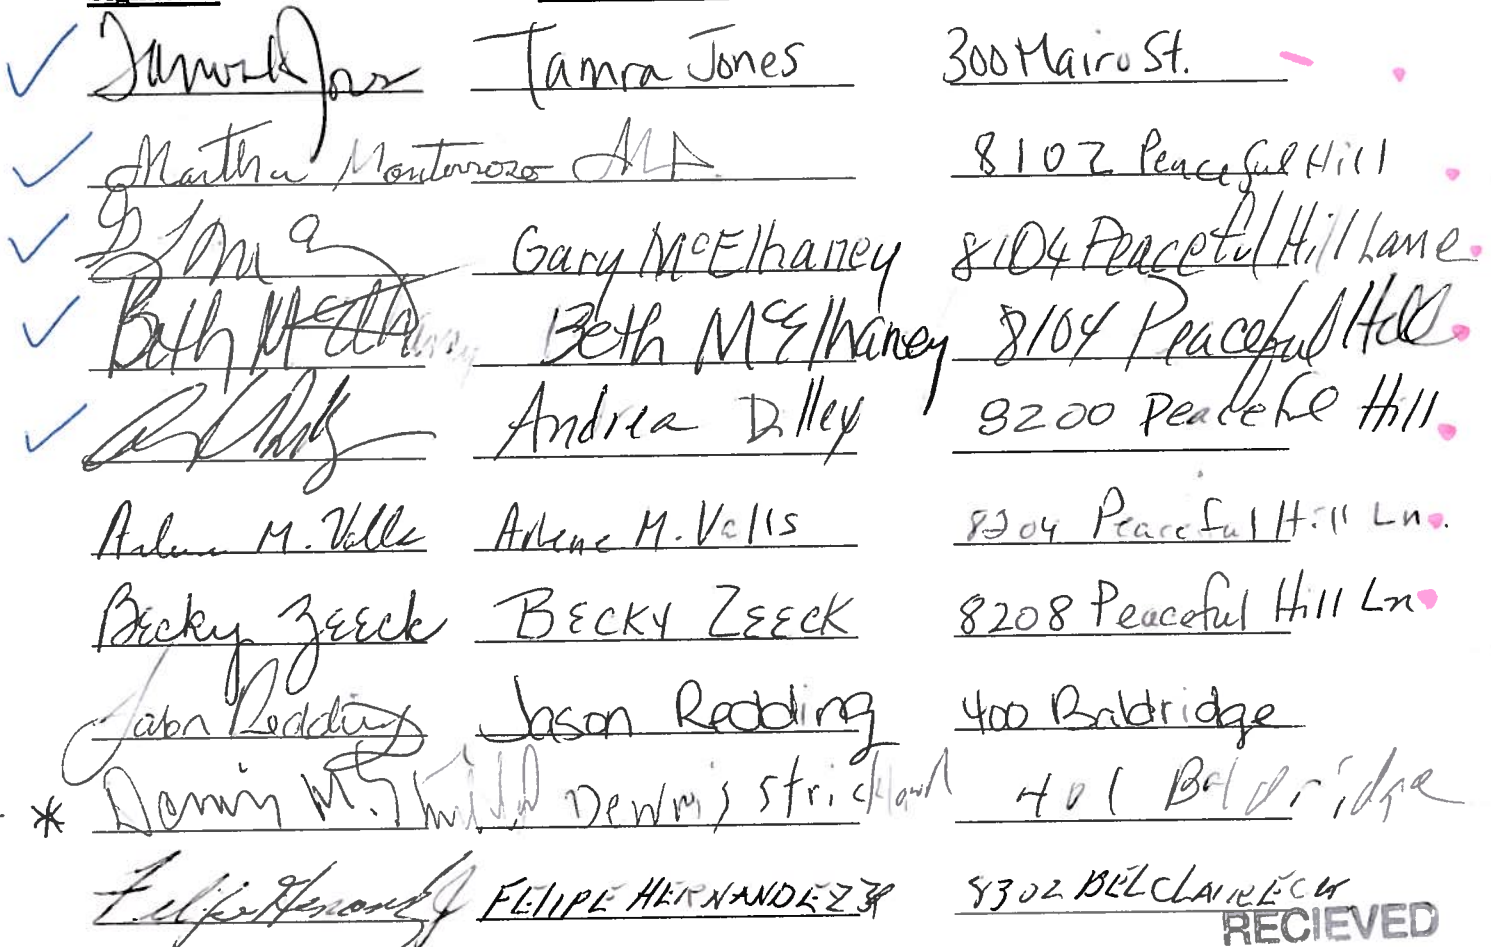 Tamra Jones Tamra Jones 300 Mairo St.
Martha Monterrozo 8102 Peaceful Hill
Gary McElhaney 8104 Peaceful Hill Lane
Beth McElhaney Beth McElhaney 8104 Peaceful Hill
Andrea Dilley 8200 Peaceful Hill
Arlene M. Valls Arlene M. Valls 8204 Peaceful Hill Ln.
Becky Zeeck BECKY ZEECK 8208 Peaceful Hill Ln
Jason Redding Jason Redding 400 Baldridge
* Dennis M. Strickland Dennis Strickland 401 Baldridge
Felipe Hernandez Jr FELIPE HERNANDEZ JR 8302
RECIEVED